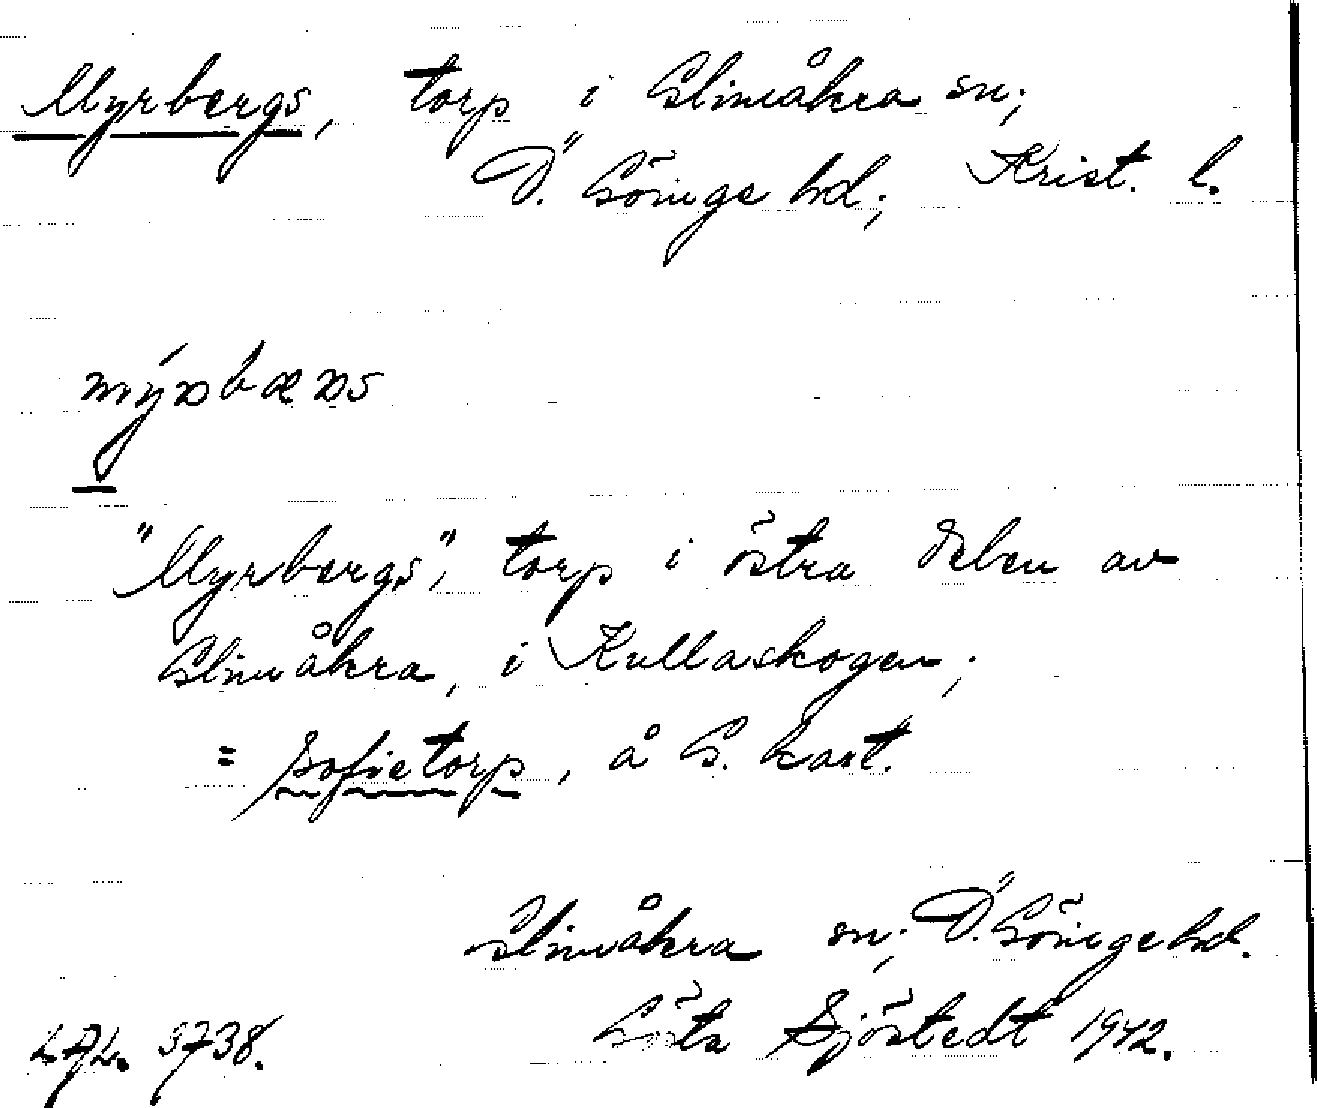 Myrbergs, torp i Glimåkra sn;
Ö. Göinge hd; Krist. l.
"Myrbergs", torp i östra delen av
Glimåkra, i Kullaskogen;
= Sofietorp, å G. kart.
Glimåkra sn; Ö. Göinge hd.
3738. Göta Sjöstedt 1942.